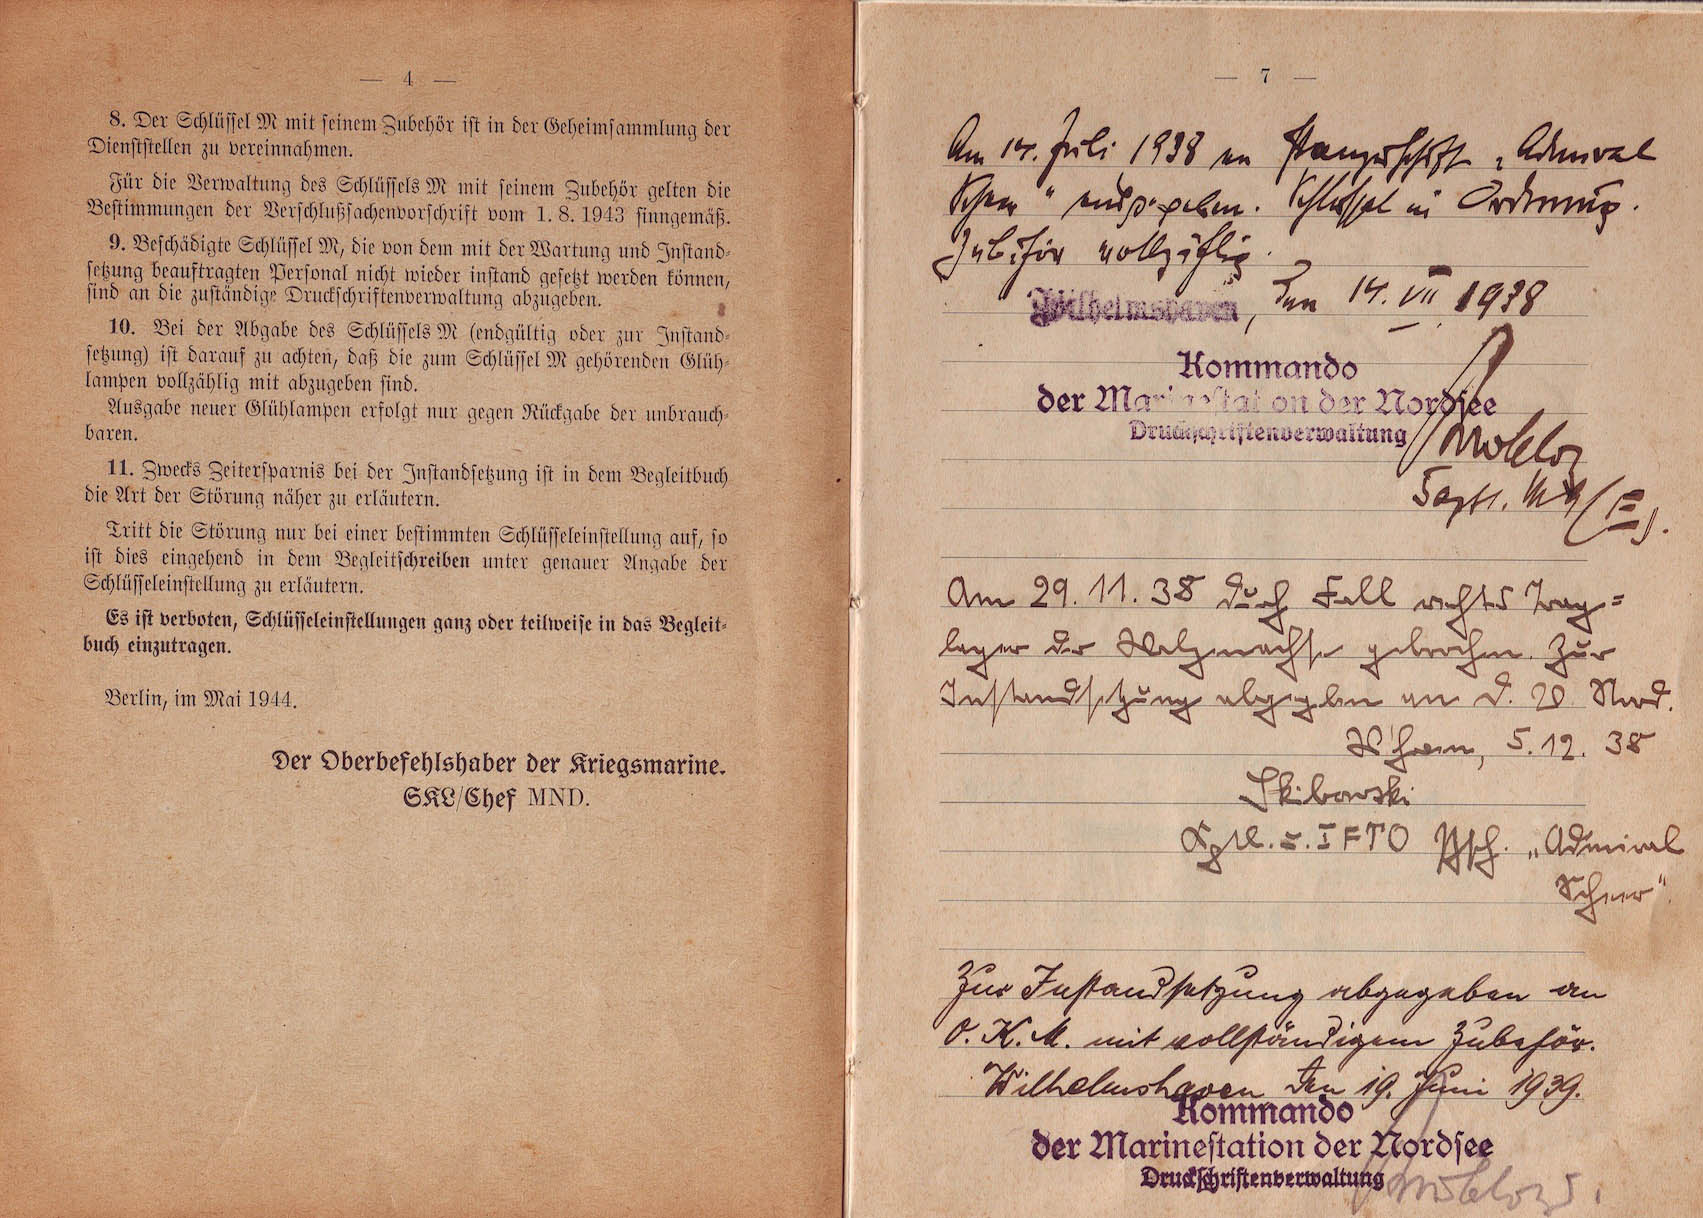 — 4 —
8. Der Schlüssel M mit seinem Zubehör ist in der Geheimsammlung der
Dienststellen zu vereinnahmen.
Für die Verwaltung des Schlüssels M mit seinem Zubehör gelten die
Bestimmungen der Verschlußsachenvorschrift vom 1. 8. 1943 sinngemäß.
9. Beschädigte Schlüssel M, die von dem mit der Wartung und Instand-
setzung beauftragten Personal nicht wieder instand gesetzt werden können,
sind an die zuständige Druckschriftenverwaltung abzugeben.
10. Bei der Abgabe des Schlüssels M (endgültig oder zur Instand-
setzung) ist darauf zu achten, daß die zum Schlüssel M gehörenden Glüh-
lampen vollzählig mit abzugeben sind.
Ausgabe neuer Glühlampen erfolgt nur gegen Rückgabe der unbrauch-
baren.
11. Zwecks Zeitersparnis bei der Instandsetzung ist in dem Begleitbuch
die Art der Störung näher zu erläutern.
Tritt die Störung nur bei einer bestimmten Schlüsseleinstellung auf, so
ist dies eingehend in dem Begleitschreiben unter genauer Angabe der
Schlüsseleinstellung zu erläutern.
Es ist verboten, Schlüsseleinstellungen ganz oder teilweise in das Begleit-
buch einzutragen.
Berlin, im Mai 1944.
Der Oberbefehlshaber der Kriegsmarine.
SKL/Chef MND.
— 7 —
Am 14. Juli 1938 an Panzerschiff „Admiral
Scheer“ ausgegeben. Schlüssel in Ordnung.
Zubehör vollzählig.
Wilhelmshaven, den 14. VII 1938
Kommando
der Marinestation der Nordsee
Druckschriftenverwaltung
Am 29. 11. 38 durch Fall rechtes Trag-
lager der Walzenachse gebrochen. Zur
Instandsetzung abgegeben an D. V. Nord.
W'haven, 5. 12. 38
Skibowski
u. I FTO Psch. „Admiral
Scheer“.
Zur Instandsetzung abgegeben an
O. K. M. mit vollständigem Zubehör.
Wilhelmshaven den 19. Juni 1939.
Kommando
der Marinestation der Nordsee
Druckschriftenverwaltung